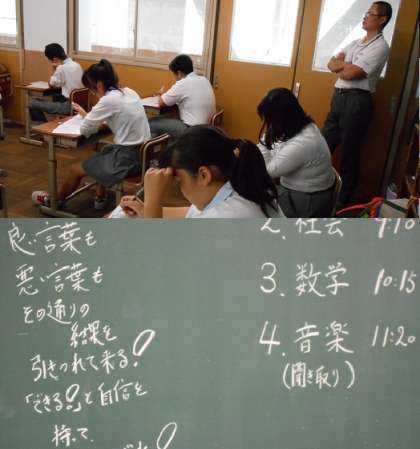 良い言葉も
悪い言葉も
その通りの
結果を
引きつれて来る!
「できる!」と自信を
持って
2. 社会 9:10
3. 数学 10:15
4. 音楽 11:20
(聞き取り)